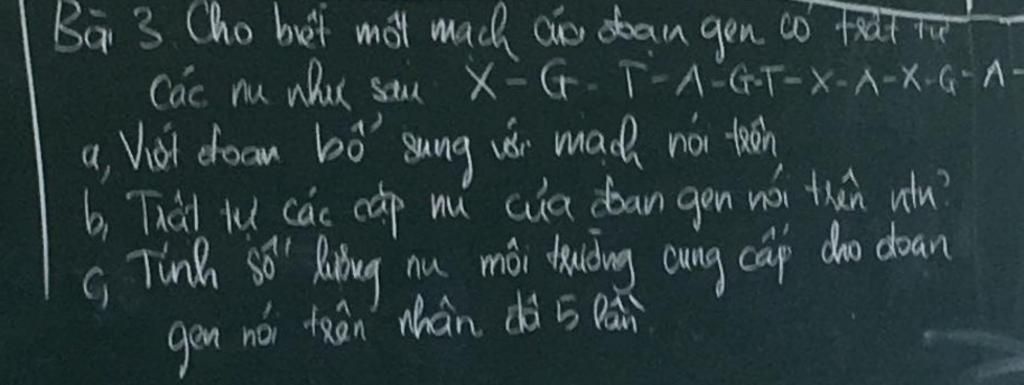 Bài 3. Cho biết một mạch của đoan gen có trật tự
các nu như sau X-G-T-A-G-T-X-A-X-G-A-
a, Viết đoan bổ sung với mạch nói trên
b, Trật tự các cặp nu của đoan gen nói trên ntn?
c, Tính số lượng nu môi trường cung cấp cho đoan
gen nói trên nhân đô 5 lần